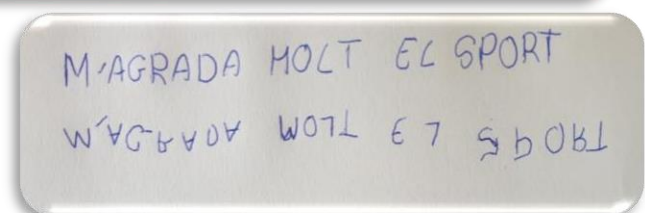 M'AGRADA MOLT EL SPORT
M'AGRADA MOLT EL SPORT